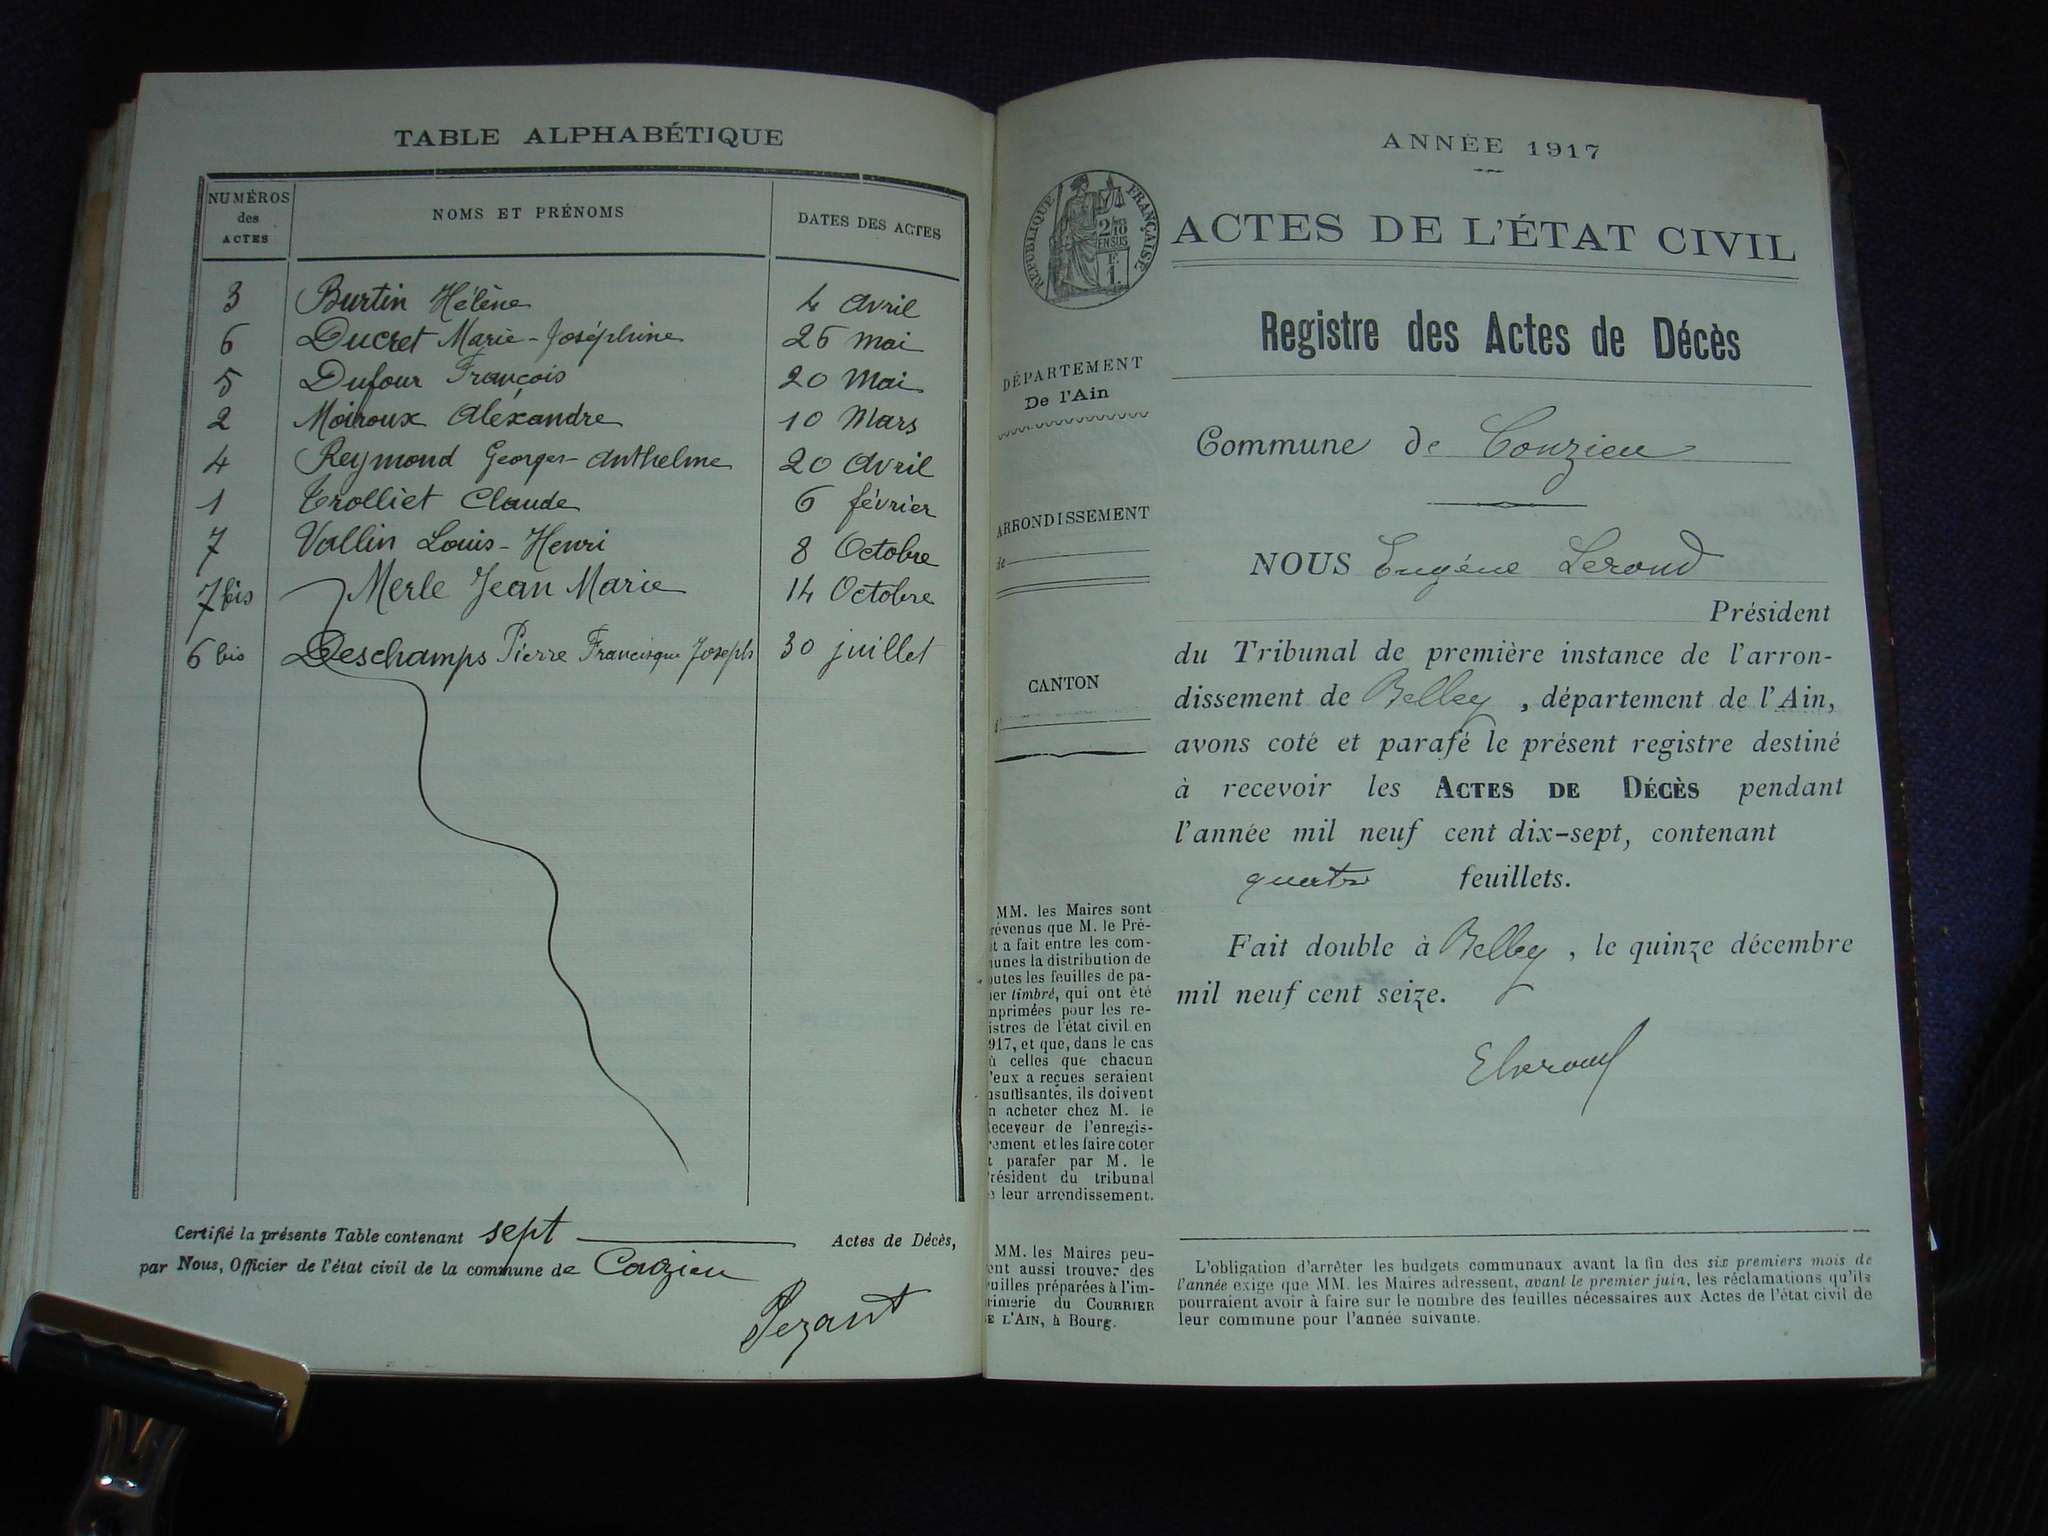 TABLE ALPHABÉTIQUE
NUMÉROS des ACTES
NOMS ET PRÉNOMS
DATES DES ACTES
3 Burtin Hélène 4 avril
6 Ducret Marie-Joséphine 26 mai
5 Dufour François 20 Mai
2 Moiroux Aléxandre 10 Mars
4 Reymond Georges-Anthelme 20 avril
1 Trolliet Claude 6 février
7 Vallin Louis-Henri 8 Octobre
7 bis Merle Jean Marie 14 Octobre
6 bis Deschamps Pierre Francisque Joseph 30 juillet
Certifié la présente Table contenant sept Actes de Décès,
par Nous, Officier de l'état civil de la commune de Conzieu
Pezant
ANNÉE 1917
RÉPUBLIQUE FRANÇAISE
2/10
EN SUS
F.
1.
ACTES DE L'ÉTAT CIVIL
Registre des Actes de Décès
DÉPARTEMENT
De l'Ain
Commune de Conzieu
ARRONDISSEMENT
de
NOUS Eugéne Lerond
Président
du Tribunal de première instance de l'arron-
CANTON
dissement de Belley, département de l'Ain,
avons coté et parafé le présent registre destiné
à recevoir les ACTES DE DÉCÈS pendant
l'année mil neuf cent dix-sept, contenant
quatre feuillets.
Fait double à Belley, le quinze décembre
mil neuf cent seize.
ELerond
MM. les Maires sont
révenus que M. le Pré-
t a fait entre les com-
unes la distribution de
outes les feuilles de pa-
ier timbré, qui ont été
mprimées pour les re-
istres de l'état civil en
917, et que, dans le cas
ù celles que chacun
'eux a reçues seraient
nsuffisantes, ils doivent
n acheter chez M. le
eceveur de l'enregis-
rement et les faire coter
t parafer par M. le
résident du tribunal
e leur arrondissement.
MM. les Maires peu-
ent aussi trouver des
euilles préparées à l'im-
rimerie du COURRIER
DE L'AIN, à Bourg.
L'obligation d'arrêter les budgets communaux avant la fin des six premiers mois de
l'année exige que MM. les Maires adressent, avant le premier juin, les réclamations qu'ils
pourraient avoir à faire sur le nombre des feuilles nécessaires aux Actes de l'état civil de
leur commune pour l'année suivante.